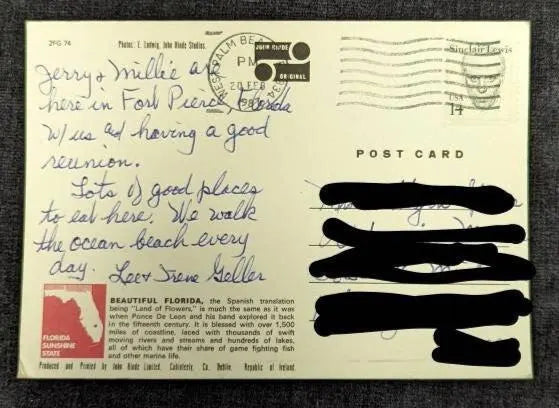 2FG 74
Photos: E. Ludwig, John Hinde Studios.
WEST PALM BEACH
PM
20 FEB
JOHN HINDE
ORIGINAL
Sinclair Lewis
USA
14
Jerry & Millie are
here in Fort Pierce, Florida
w/ us and having a good
reunion.
Lots of good places
to eat here. We walk
the ocean beach every
day. Lee & Irene Geller
POST CARD
FLORIDA
SUNSHINE
STATE
BEAUTIFUL FLORIDA, the Spanish translation
being "Land of Flowers," is much the same as it was
when Ponce De Leon and his band explored it back
in the fifteenth century. It is blessed with over 1,500
miles of coastline, laced with thousands of swift
moving rivers and streams and hundreds of lakes,
all of which have their share of game fighting fish
and other marine life.
Produced and Printed by John Hinde Limited, Cabinteely, Co. Dublin, Republic of Ireland.